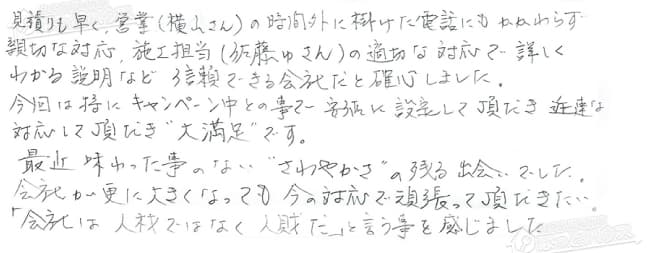 見積りも早く、営業(横山さん)の時間外に掛けた電話にもかかわらず
親切な対応、施工担当(佐藤ゆさん)の適切な対応で詳しく
わかる説明など信頼できる会社だと確心しました。
今回は特にキャンペーン中との事で安価に設定して頂だき迅速な
対応して頂だき"大満足"です。
最近味わった事のない"さわやかさ"の残る出会いでした。
会社が更に大きくなっても今の対応で頑張って頂だきたい。
「会社は人材ではなく人財だ」と言う事を感じました